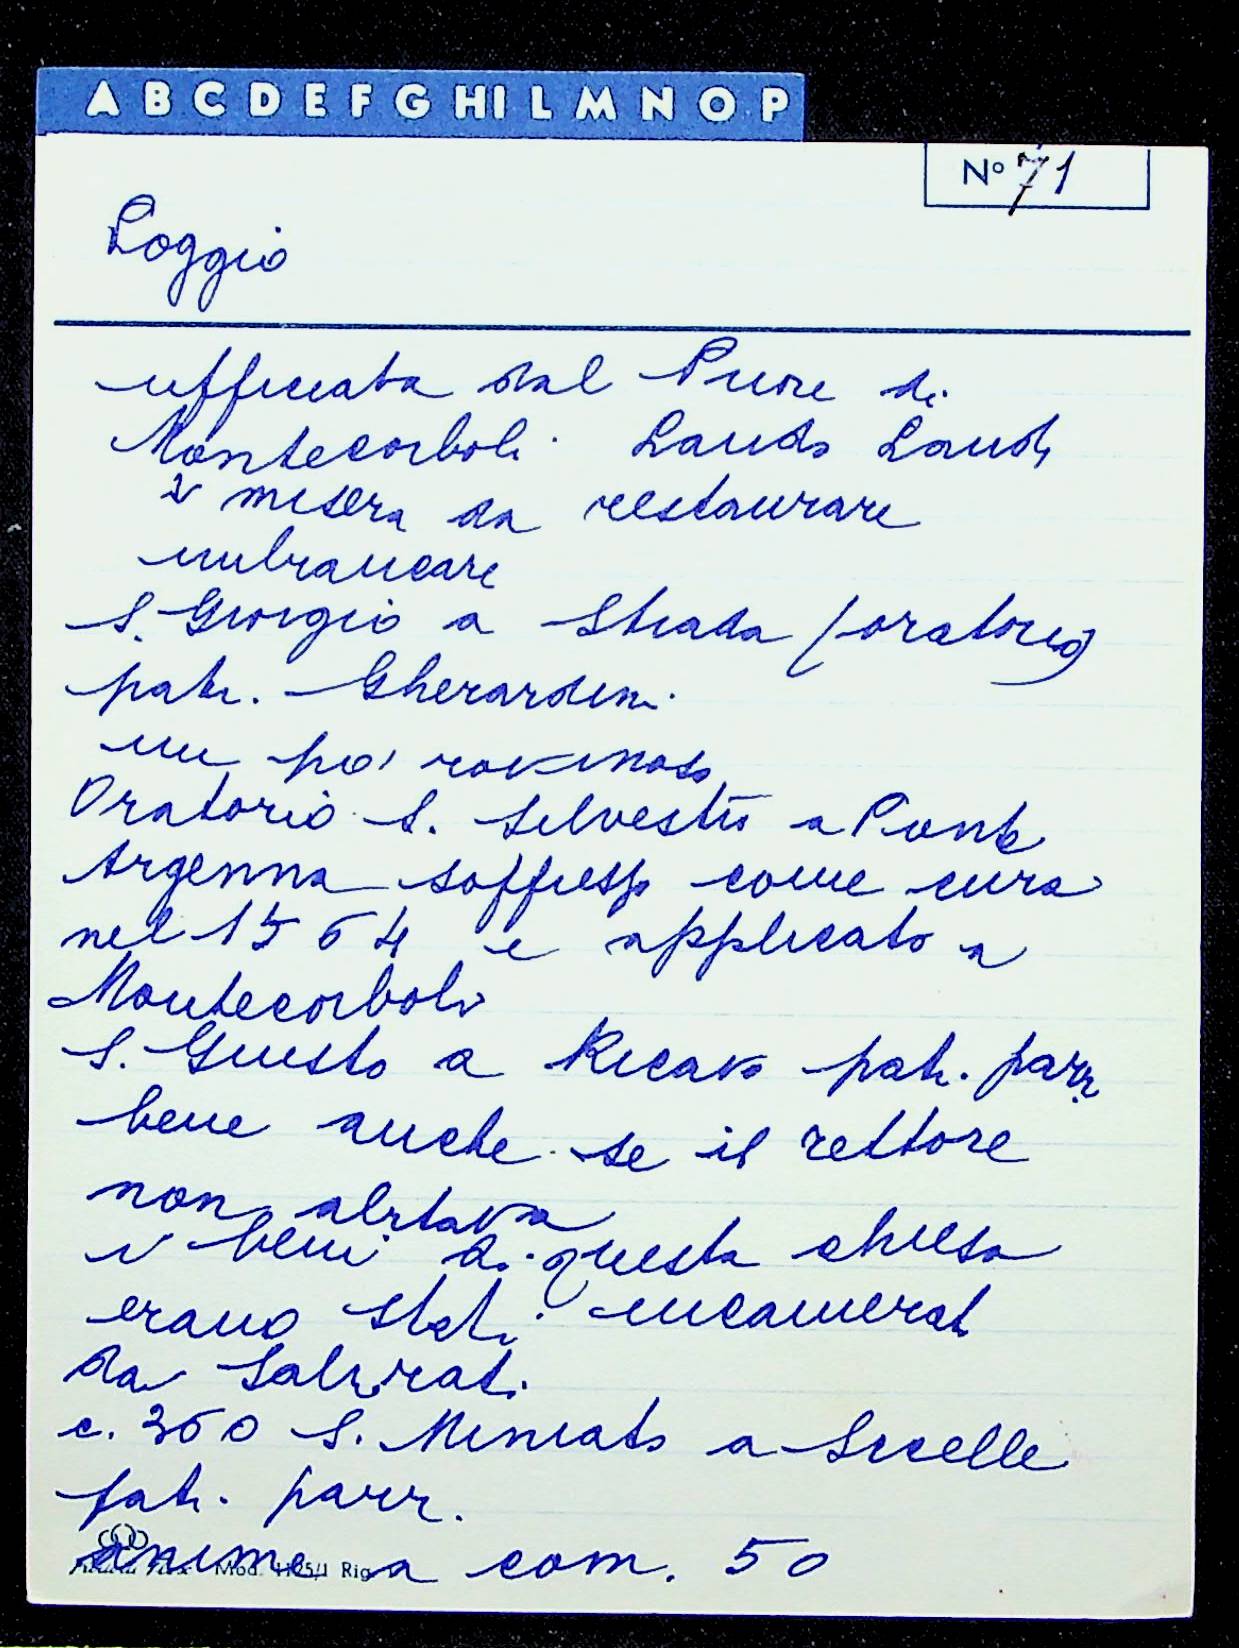 A B C D E F G HI L M N O P
N° 71
Poggio
ufficiata dal Priore di
Montecorboli. Lando Landi
è misera da restaurare
imbiancare
S. Giorgio a Strada (oratorio)
patr. Gherardini
un po' rovinoso
Oratorio S. Silvestro a Ponte
Argenna soffresso come cura
nel 1564 e applicato a
Montecorboli
S. Giusto a Ricavo patr. parr.
bene anche se il rettore
non abitava
i beni di questa chiesa
erano stati incamerati
da Salviati.
c. 360 S. Miniato a Sicelle
patr. parr.
anime a com. 50
Mod. 1125/1 Rig.